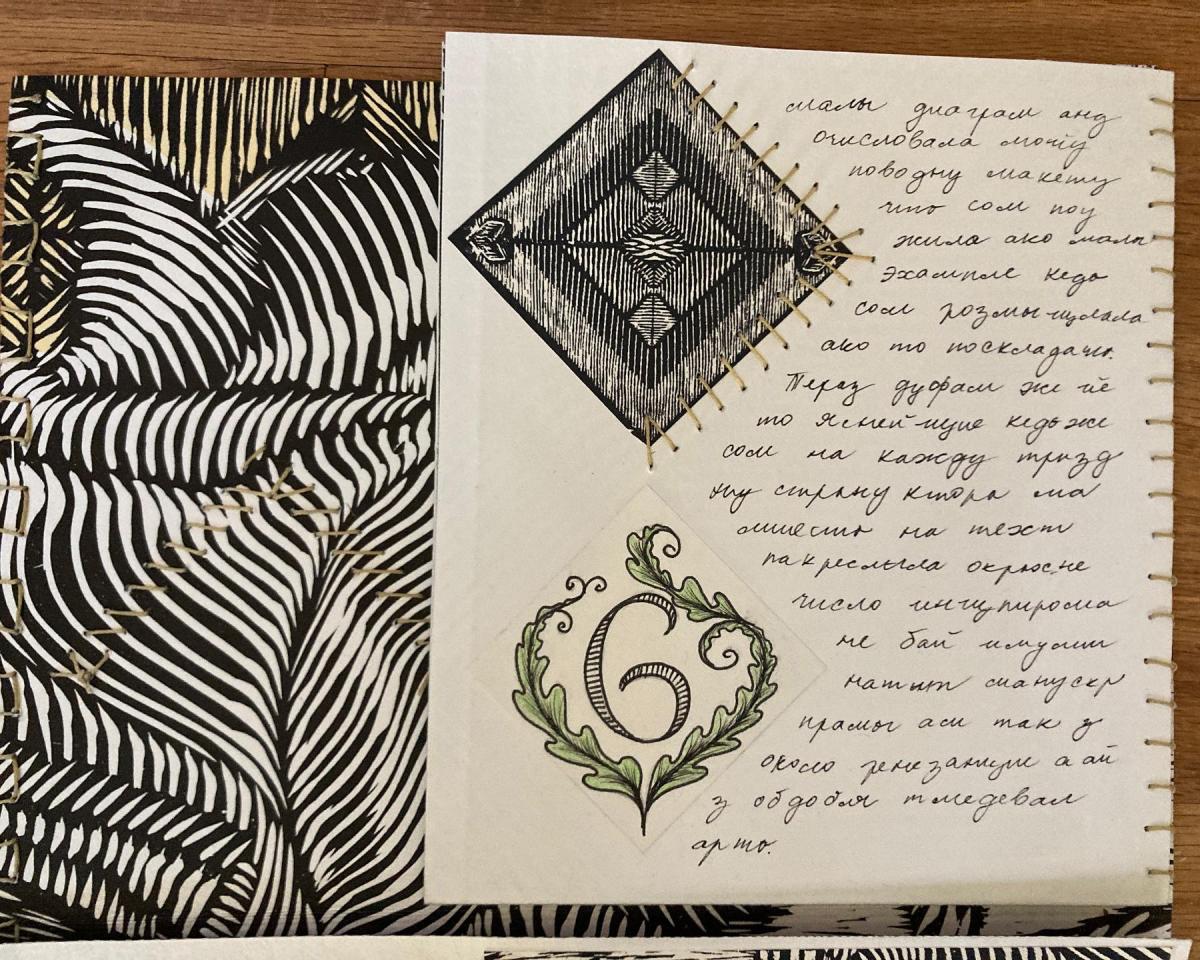 малы диаграм анд
очисловала мойу
поводну макету
что сом поу
жила ако малы
эхампле кедь
сом розмышлала
ако то поскладачь.
Тераз дуфам же йе
то Ясней-шие кедьже
сом на кажду тризд
ну страну ктора ма
миесто на техт
накреслыла окрюсне
число инщпирома
не бай
манускр
так з
около
з обдобя медевал
арто.
6